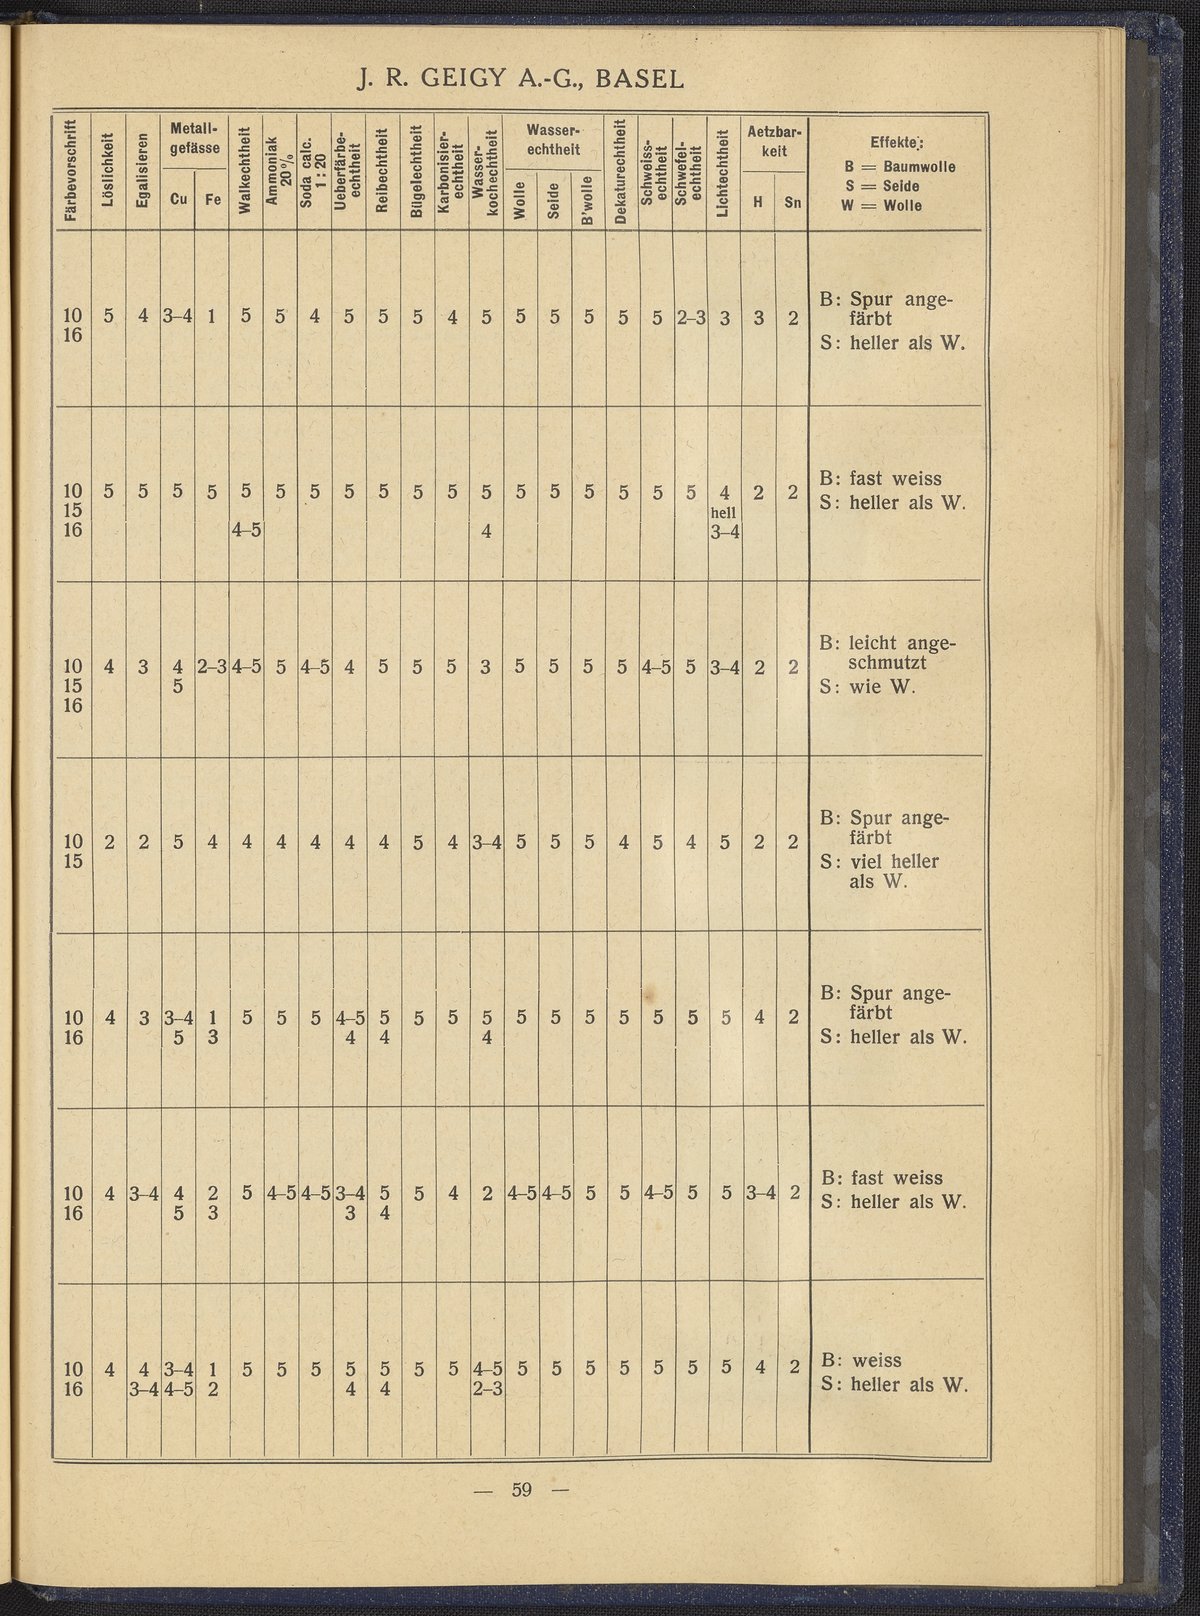 J. R. GEIGY A.-G., BASEL
Färbevorschrift
Löslichkeit
Egalisieren
Metall-
gefässe
Cu Fe
Walkechtheit
Ammoniak
20 %
Soda calc.
1 : 20
Ueberfärbe-
echtheit
Reibechtheit
Bügelechtheit
Karbonisier-
echtheit
Wasser-
kochechtheit
Wasser-
echtheit
Wolle
Seide
B'wolle
Dekaturechtheit
Schweiss-
echtheit
Schwefel-
echtheit
Lichtechtheit
Aetzbar-
keit
H Sn
Effekte:
B = Baumwolle
S = Seide
W = Wolle
10 5 4 3–4 1 5 5 4 5 5 5 4 5 5 5 5 5 5 2–3 3 3 2
16
B: Spur ange-
färbt
S: heller als W.
10 5 5 5 5 5 5 5 5 5 5 5 5 5 5 5 5 5 5 4 2 2
15 hell
16 4–5 4 3–4
B: fast weiss
S: heller als W.
10 4 3 4 2–3 4–5 5 4–5 4 5 5 5 3 5 5 5 5 4–5 5 3–4 2 2
15 5
16
B: leicht ange-
schmutzt
S: wie W.
10 2 2 5 4 4 4 4 4 4 5 4 3–4 5 5 5 4 5 4 5 2 2
15
B: Spur ange-
färbt
S: viel heller
als W.
10 4 3 3–4 1 5 5 5 4–5 5 5 5 5 5 5 5 5 5 5 5 4 2
16 5 3 4 4 4
B: Spur ange-
färbt
S: heller als W.
10 4 3–4 4 2 5 4–5 4–5 3–4 5 5 4 2 4–5 4–5 5 5 4–5 5 5 3–4 2
16 5 3 3 4
B: fast weiss
S: heller als W.
10 4 4 3–4 1 5 5 5 5 5 5 5 4–5 5 5 5 5 5 5 5 4 2
16 3–4 4–5 2 4 4 2–3
B: weiss
S: heller als W.
— 59 —